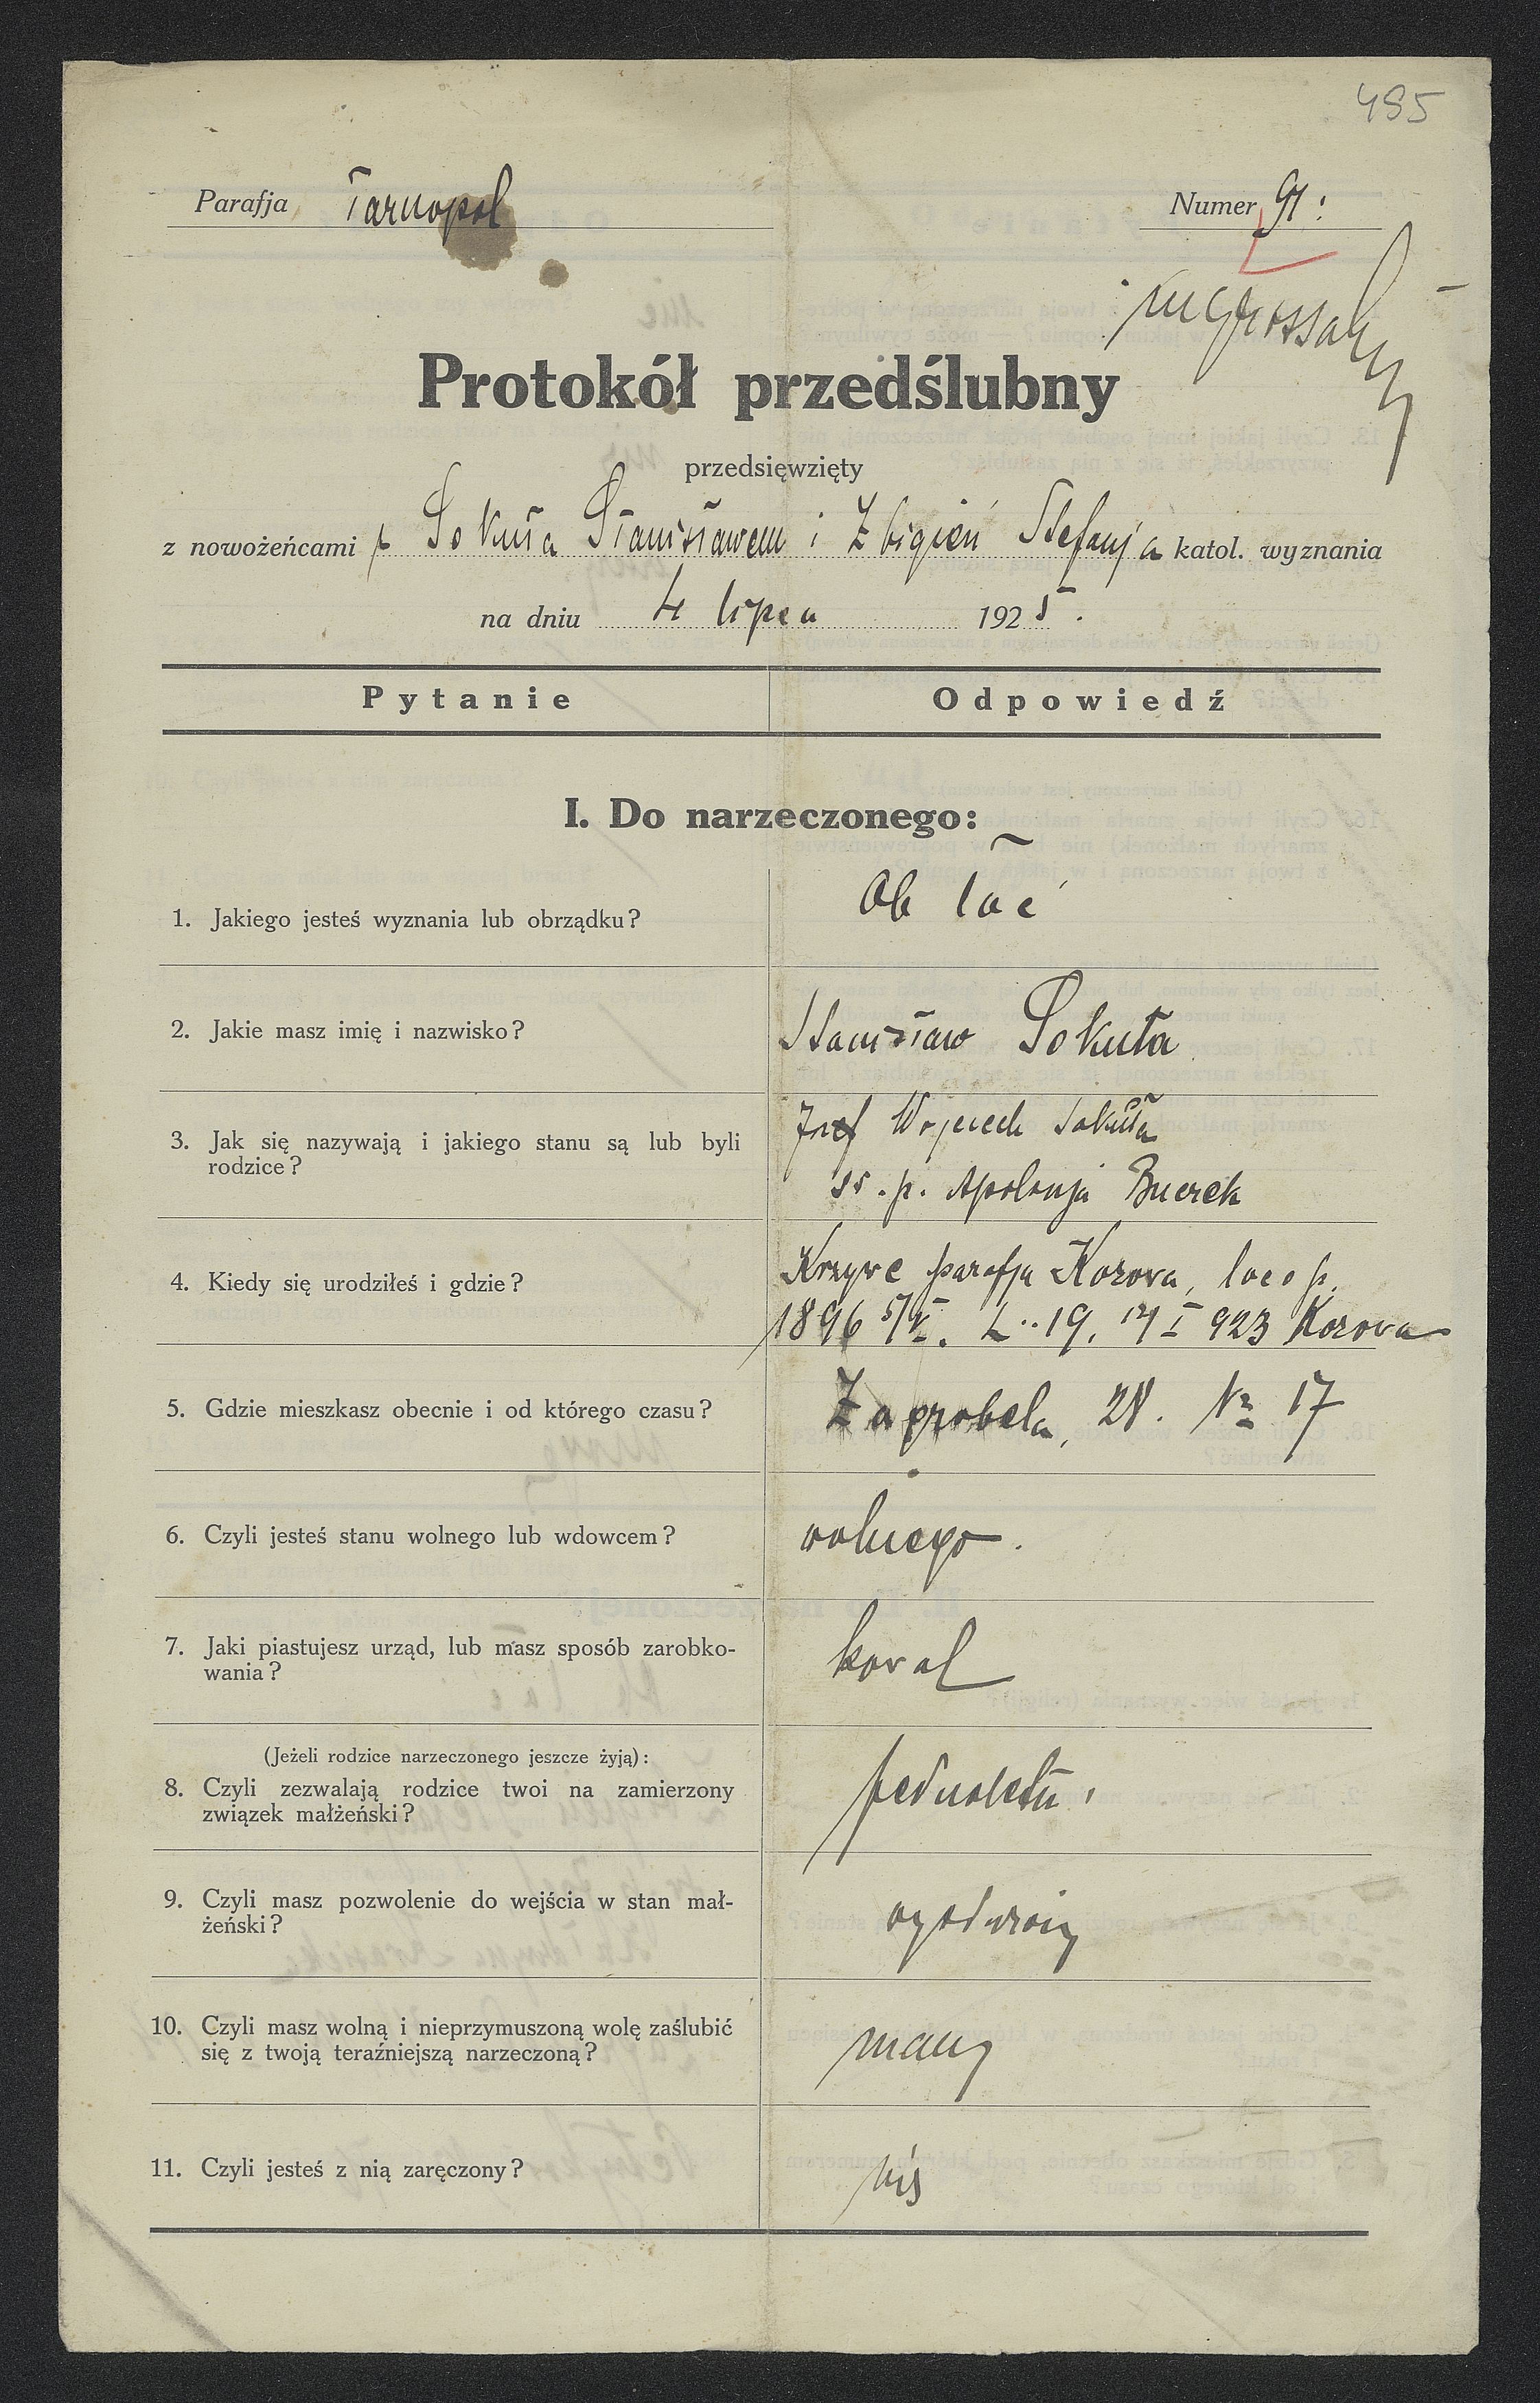 495
Parafja Tarnopol
Numer 91:
ingrossaty
Protokół przedślubny
przedsięwzięty
z nowożeńcami p Sokuła Stanisławem i Zbigień Stefanja katol. wyznania
na dniu 4 lipca 1925.
Pytanie Odpowiedź
I. Do narzeczonego:
1. Jakiego jesteś wyznania lub obrządku? Ob łać
2. Jakie masz imię i nazwisko? Stanisław Sokuła
3. Jak się nazywają i jakiego stanu są lub byli Józef Wojciech Sokuła
rodzice? ś. p. Apolonja
4. Kiedy się urodziłeś i gdzie? Krzywe parafja Kozova, loco p.
1896 5/V. L. 19. 14 I 923 Kozova
5. Gdzie mieszkasz obecnie i od którego czasu? Zagrobela, 28. No 17
6. Czyli jesteś stanu wolnego lub wdowcem? wolnego.
7. Jaki piastujesz urząd, lub masz sposób zarobko- koval
wania?
(Jeżeli rodzice narzeczonego jeszcze żyją):
8. Czyli zezwalają rodzice twoi na zamierzony
związek małżeński?
9. Czyli masz pozwolenie do wejścia w stan mał-
żeński?
10. Czyli masz wolną i nieprzymuszoną wolę zaślubić mam
się z twoją teraźniejszą narzeczoną?
11. Czyli jesteś z nią zaręczony?